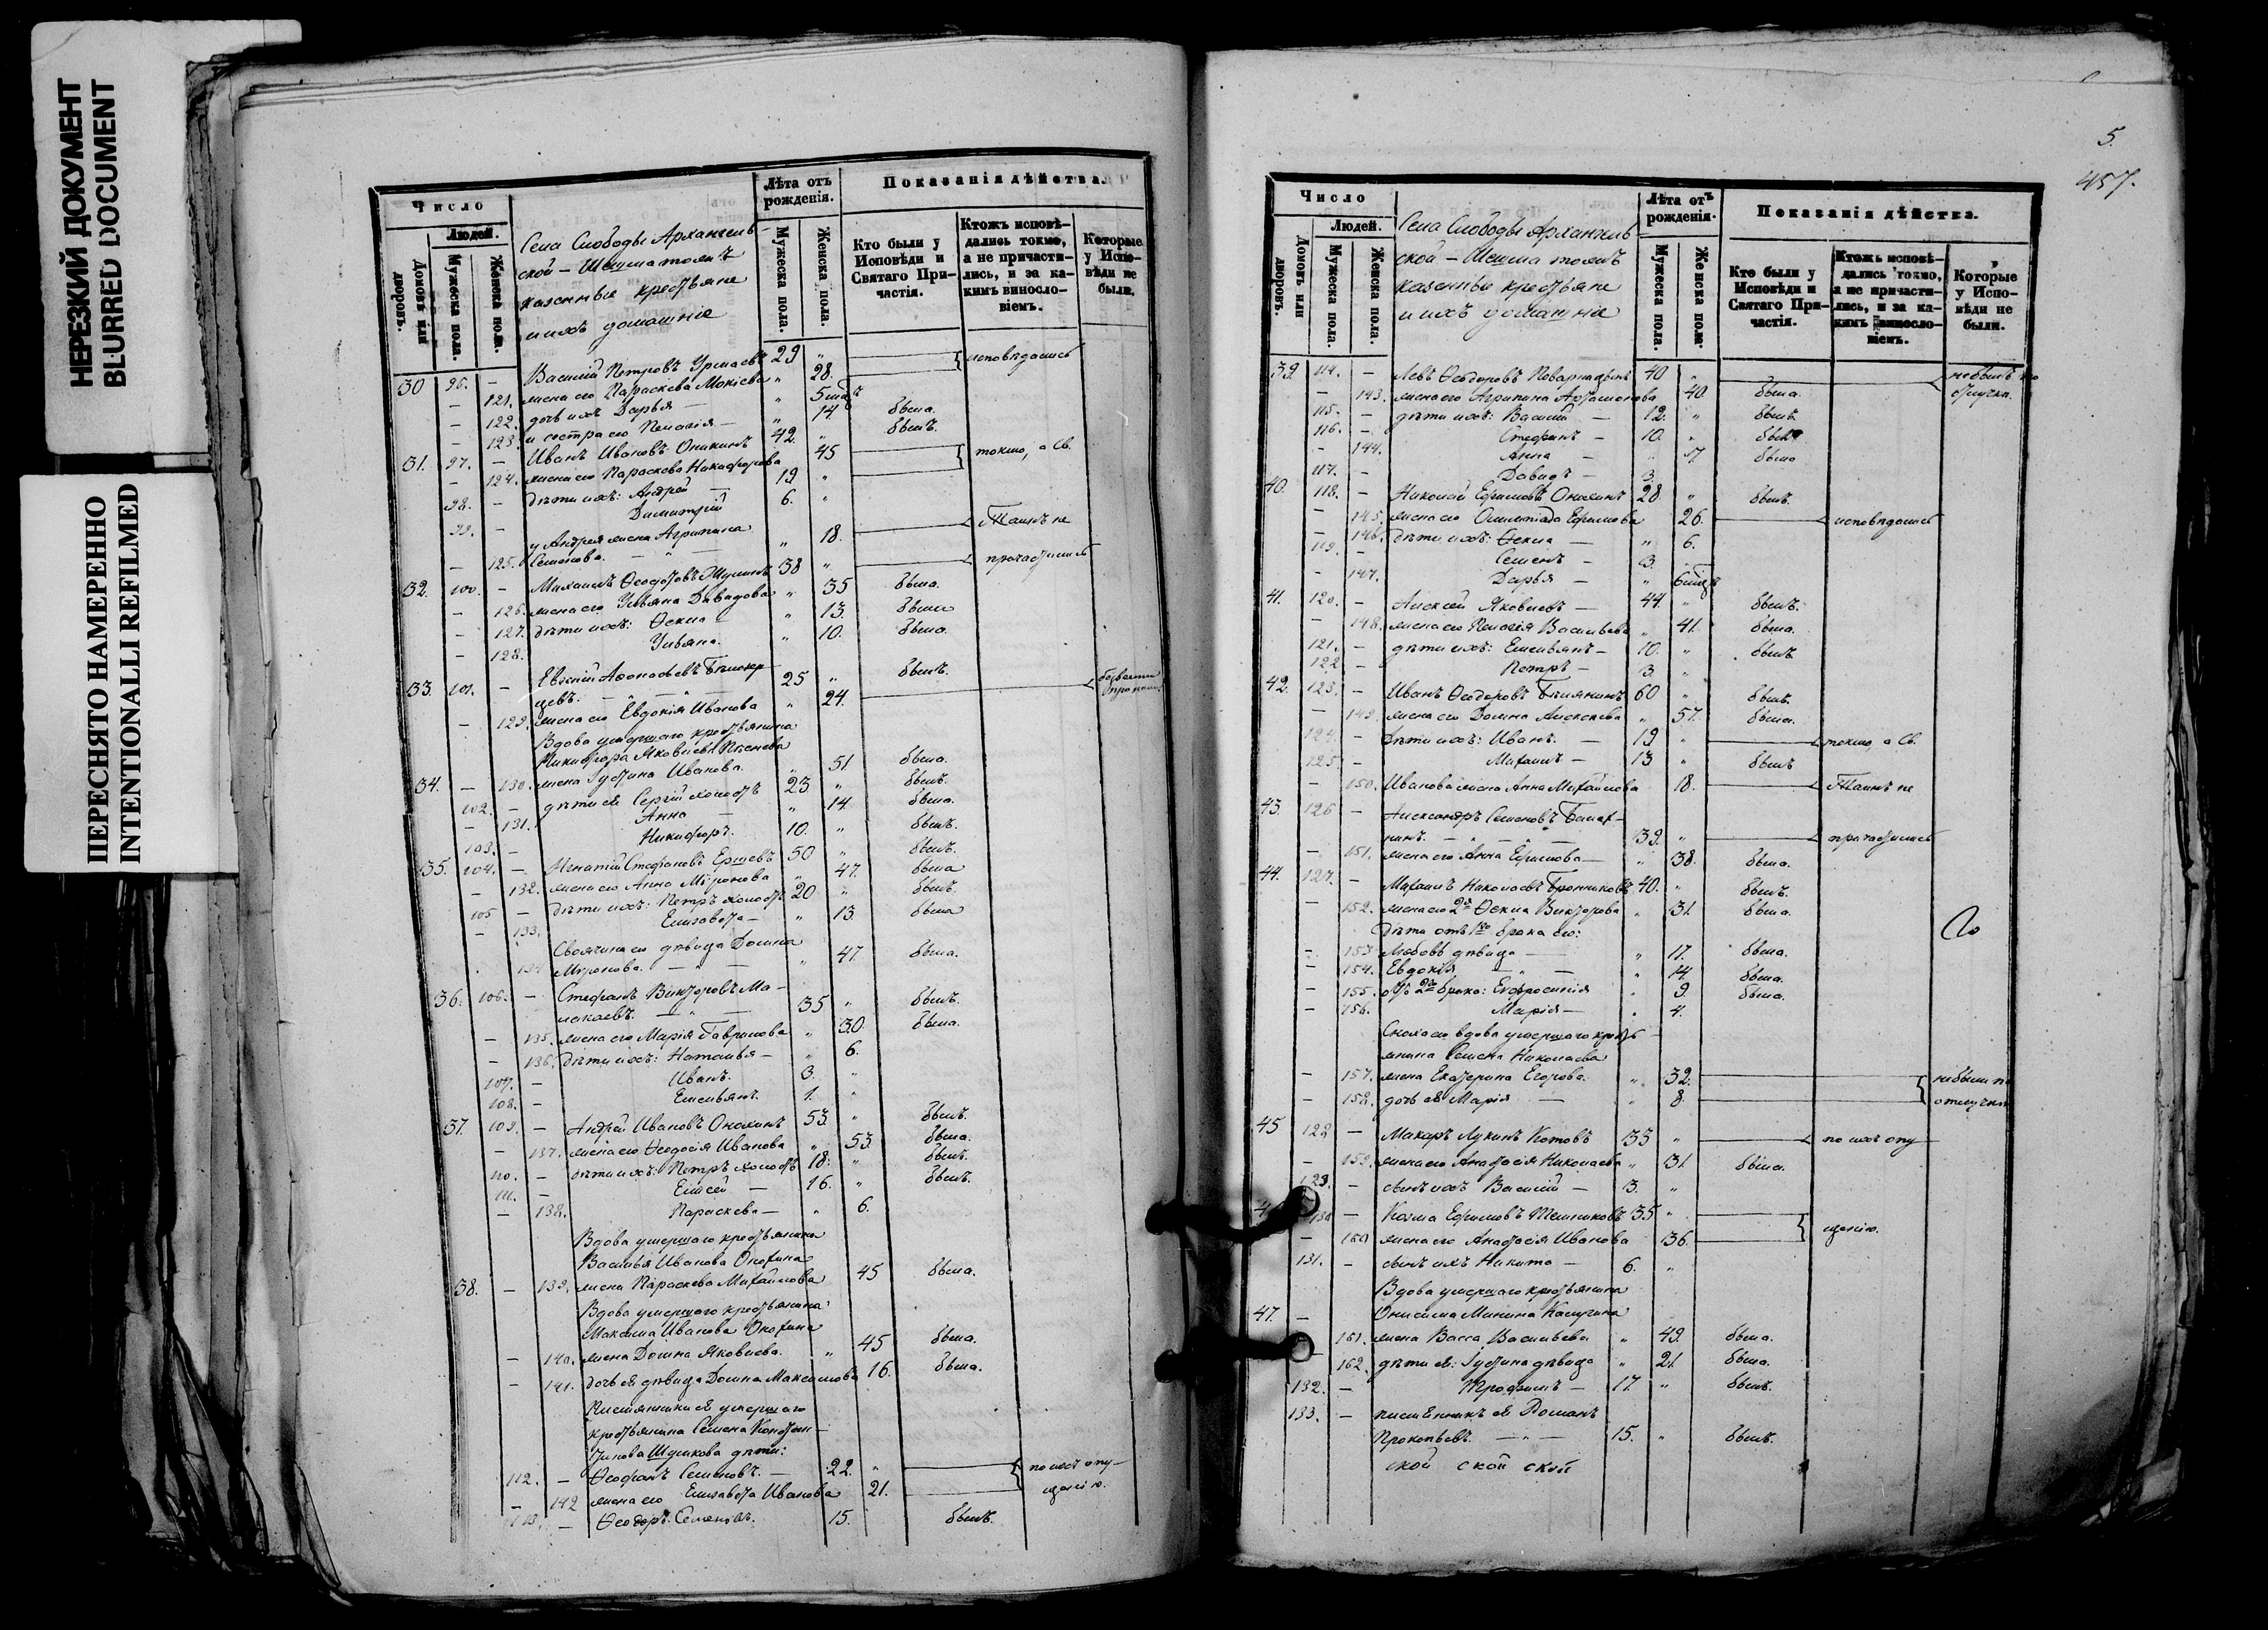 НЕРЕЗКИЙ ДОКУМЕНТ
BLURRED DOCUMENT
ПЕРЕСНЯТО НАМЕРЕННО
INTENTIONALLI REFILMED
Число
Людей.
Домовъ или дворовъ.
Мужеска пола.
Женска пола.
Села Слободы Архангель-
ской - Шешма тожъ
казенные крестьяне
и ихъ домашніе
Лѣта отъ рожденія.
Мужеска пола.
Женска пола.
Показанія дѣйства.
Кто были у Исповѣди и Святаго При-
частія.
Ктожъ исповѣ-
дались токмо,
а не причасти-
лись, и за ка-
кимъ винosло-
віемъ.
Которые
у Испо-
вѣди не
были.
30 96. - Василій Петровъ 29 " исповѣдались
- 121. жена его Параскева Мокіева " 28.
- 122. дочь ихъ Дарья - "
- 123. и сестра его Пелагія - " 14. была.
31. 97. - Иванъ Ивановъ 42. " былъ.
- 124. жена его Параскева Никифорова 45 токмо, а Св.
98. - дѣти ихъ: Андрей - 19 "
99. - Димитрій 6. "
у Андрея жена Агрипина
- 125. Семенова. - " - " 18. Таинъ не
32. 100. - Михаилъ Ѳеодотовъ 38 " причастились
- 126. жена его Ульяна Давидова " 35 была.
- 127. дѣти ихъ: Ѳекла - " 13. была
- 128. Ульяна. " 10. была.
33. 101. -
цевъ. - " - 25 " былъ.
- 129. жена его Евдокія Ивановa " 24.
Вдова умершаго крестьянина
Никифора Яковлева
34. - 130. жена Іустина Иванова. " 51. была.
102. - дѣти ея Сергій холостъ 23 " былъ.
- 131. Анна - " 14 была.
103. - Никифоръ. 10. " былъ.
35. 104. - Игнатій Стефановъ Ершевъ 50 " былъ.
- 132. жена его Анна Міронова " 47. была
105 - дѣти ихъ: Петръ холостъ 20 " былъ.
- 133. Елизавета - " 13 была
Своячина его дѣвица Домна
134 Міронова. - " - " 47. была.
36. 106. - Стефанъ Викторовъ Ма-
лакаевъ. - " - 35 " былъ.
- 135. жена его Марія Гаврилова " 30. была.
- 136. дѣти ихъ: Наталья - " 6.
107. - Иванъ. 3. "
108. - Емельянъ. 1. "
37. 109. - Андрей Ивановъ 53. " былъ.
- 137. жена его Ѳеодосія Иванова " 53. была.
110. - дѣти ихъ: Петръ холостъ 18. " былъ.
111. - Елисей - 16. " былъ.
- 138. Параскева - " 6.
Вдова умершаго крестьянина
Василья Иванова
38. - 139. жена Параскева Михайлова 45 была.
Вдова умершаго крестьянина
Максима Иванова
- 140. жена Домна Яковлева. " 45 была.
- 141. дочь ея дѣвица Домна Максимова 16. была.
Племянники ея умершаго
крестьянина Семена Констан-
тинова дѣти:
112. - Ѳеофанъ Семеновъ. - 22. " по ихъ опу-
- 142 жена его Елизавета Иванова 21. щенію.
113. - Ѳеодоръ Семеновъ. 15. былъ.
5.
457.
Число
Людей.
Домовъ или дворовъ.
Мужеска пола.
Женска пола.
Села Слободы Архангель-
ской - Шешма тожъ
казенные крестьяне
и ихъ домашніе
Лѣта отъ рожденія.
Мужеска пола.
Женска пола.
Показанія дѣйства.
Кто были у Исповѣди и Святаго При-
частія.
Ктожъ исповѣ-
дались токмо,
а не причасти-
лись, и за ка-
кимъ винosло-
віемъ.
Которые
у Испо-
вѣди не
были.
39. 114. - Левъ Ѳеодоровъ 40 " не былъ по
- 143. жена его Агрипина Артамонова 40. была. отлучкѣ.
115. - дѣти ихъ: Василій - 12. " былъ.
116. - Стефанъ - 10. " былъ
- 144. Анна - " была
117. - Давидъ - 3.
40. 118. - Николай Ефимовъ 28 " былъ.
- 145. жена его Олимпіада Ефимова 26. исповѣдались
- 146. дѣти ихъ: Ѳекла - " 6.
119. - Семенъ - 3
- 147. Дарья - "
41. 120. - Алексей Яковлевъ - 44. " былъ.
- 148. жена его Пелагія Васильева " 41. была.
121. - дѣти ихъ: Емельянъ - 10. " былъ
122 - Петръ - 3 "
42. 123. - Иванъ Ѳеодоровъ 60 " былъ.
- 149. жена его Домна Алексеева " 57. была.
124. - Дѣти ихъ: Иванъ. - 19 " токмо, а Св.
125. - Михаилъ - 13 " былъ
- 150. Иванова жена Анна Михайлова 18. Таинъ не
43. 126 - Александръ Семеновъ
39. " причастились
- 151. жена его Анна Ефимова - " 38. была.
44. 127. - Михаилъ Николаевъ Бронниковъ 40. " былъ.
- 152. жена его 2я Ѳекла Викторова " 31. была.
Дѣти отъ 1го брака его:
- 153 Любовь дѣвица - " 17. была.
- 154. Евдокія - " - " 14. была.
- 155. отъ 2го брака: Евфросинія " 9. была.
- 156. Марія - " 4.
Сноха его вдова умершаго кресть-
янина Семена Николаева
- 157. жена Екатерина Егорова. " 32. не были по
- 158. дочь ея Марія - " 8. отлучкѣ
45 128 - Макаръ Лукинъ Котовъ 33 " по ихъ опу
- 159. жена его Анастасія Николаева " 31. была.
129. - сынъ ихъ Василій - 3. "
130 - Козма Ефимовъ 35 "
- 160 жена его Анастасія Иванова 36. щенію.
131. - сынъ ихъ Никита - 6. "
Вдова умершаго крестьянина
47. - Онисима Минина Калугина
- 161. жена Васса Васильева " 49. была.
- 162. дѣти ея: Іустина дѣвица " 21. была.
132. - Трофимъ - 17. " былъ.
133. - племянникъ ея Романъ
Прокопьевъ. - " - 15. " былъ.
ской ской ской